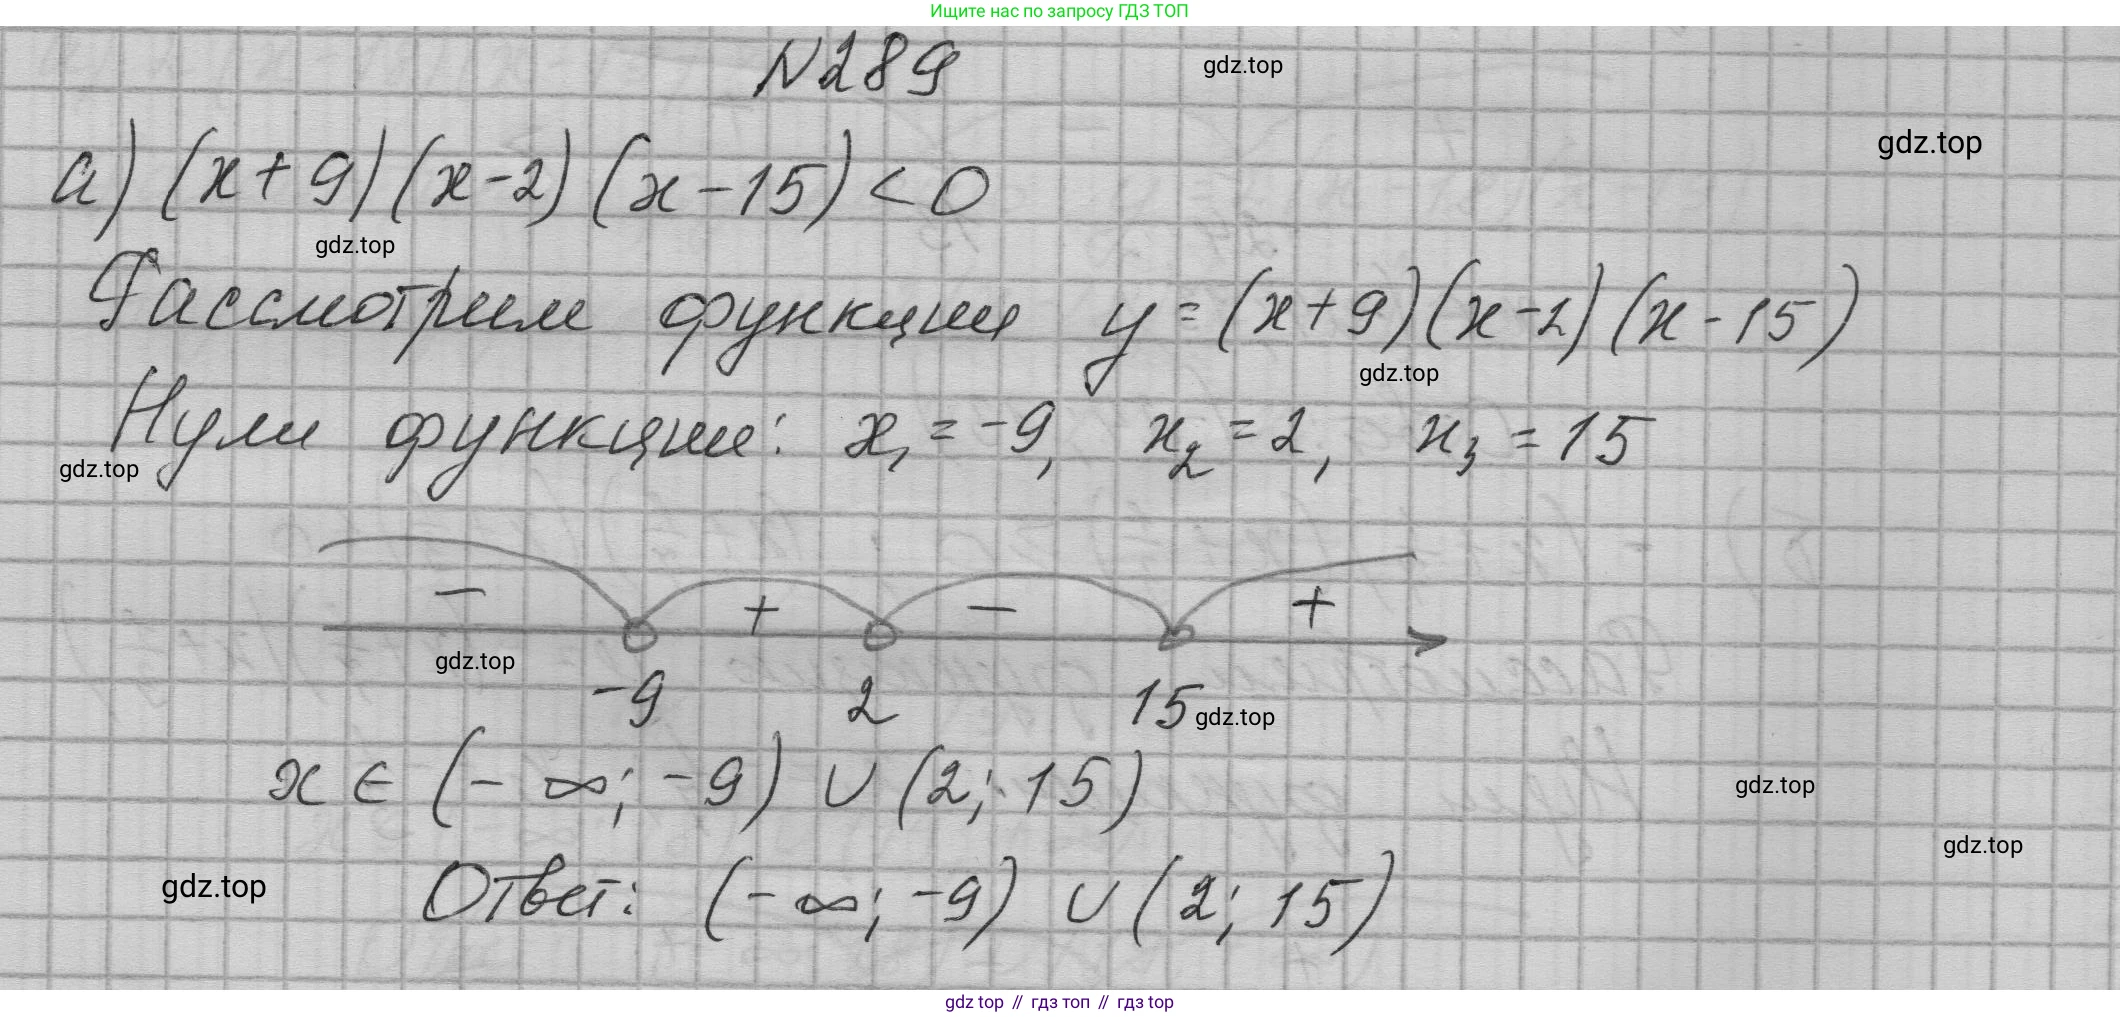 Ищите нас по запросу ГДЗ ТОП
N289
gdz.top
gdz.top
а) (x+9)(x-2)(x-15)<0
gdz.top
Рассмотрим функции y=(x+9)(x-2)(x-15)
gdz.top
Нули функции: x₁=-9, x₂=2, x₃=15
gdz.top
- + - +
gdz.top
-9 2 15
gdz.top
x ∈ (-∞; -9) ∪ (2; 15)
gdz.top
gdz.top
gdz.top
Ответ: (-∞; -9) ∪ (2; 15)
gdz top // гдз топ // гдз top